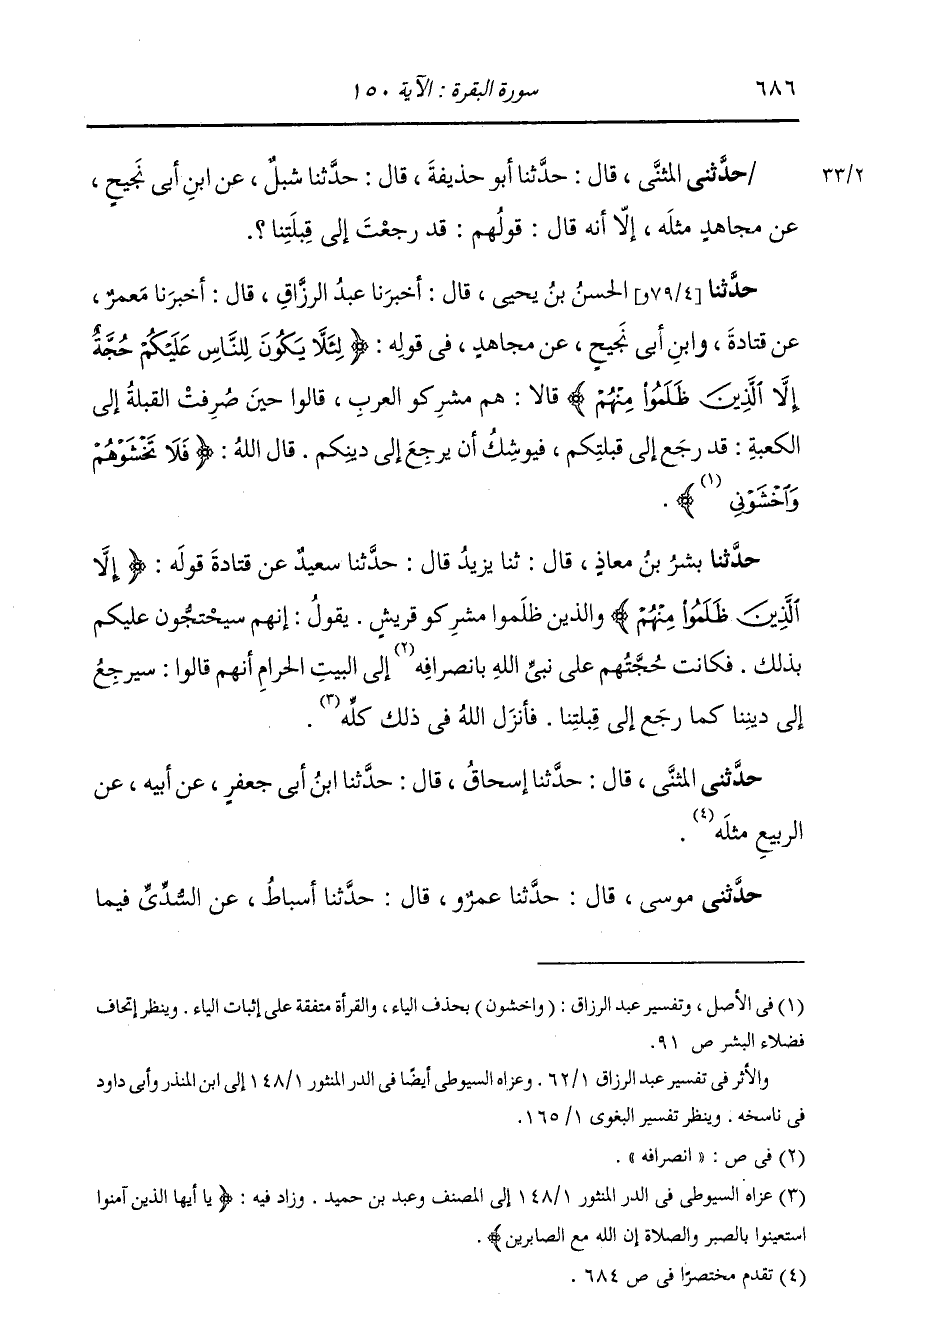 ٦٨٦ سورة البقرة : الآية ١٥٠
٣٣/٢ /حدَّثنى المثنَّى ، قال : حدَّثنا أبو حذيفةَ ، قال : حدَّثنا شبلٌ ، عن ابنِ أبى نَجيحٍ ،
عن مجاهدٍ مثلَه ، إلّا أنه قال : قولُهم : قد رجعْتَ إلى قِبلَتِنا ؟.
حدَّثنا [٧٩/٤و] الحسنُ بنُ يحيى ، قال : أخبرَنا عبدُ الرزَّاقِ ، قال : أخبرَنا مَعمرٌ ،
عن قتادةَ ، وابنِ أبى نَجيحٍ ، عن مجاهدٍ ، فى قولِه : ﴿ لِئَلَّا يَكُونَ لِلنَّاسِ عَلَيْكُمْ حُجَّةٌ
إِلَّا ٱلَّذِينَ ظَلَمُوا۟ مِنْهُمْ ﴾ قالا : هم مشركو العربِ ، قالوا حينَ صُرِفتْ القبلةُ إلى
الكعبةِ : قد رجَع إلى قبلتِكم ، فيوشِكُ أن يرجِعَ إلى دينِكم . قال اللهُ : ﴿ فَلَا تَخْشَوْهُمْ
وَٱخْشَوْنِى (١) ﴾ .
حدَّثنا بشرُ بنُ معاذٍ ، قال : ثنا يزيدُ قال : حدَّثنا سعيدٌ عن قتادةَ قولَه : ﴿ إِلَّا
ٱلَّذِينَ ظَلَمُوا۟ مِنْهُمْ ﴾ والذين ظلَموا مشركو قريشٍ . يقولُ : إنهم سيحتجُّون عليكم
بذلك . فكانت حُجَّتُهم على نبىِّ اللهِ بانصرافِه(٢) إلى البيتِ الحرامِ أنهم قالوا : سيرجِعُ
إلى دينِنا كما رجَع إلى قِبلتِنا . فأنزَل اللهُ فى ذلك كلِّه(٣) .
حدَّثنى المثنَّى ، قال : حدَّثنا إسحاقُ ، قال : حدَّثنا ابنُ أبى جعفرٍ ، عن أبيه ، عن
الربيعِ مثلَه(٤) .
حدَّثنى موسى ، قال : حدَّثنا عمرٌو ، قال : حدَّثنا أسباطُ ، عن السُّدِّىِّ فيما
(١) فى الأصل ، وتفسير عبد الرزاق : ( واخشون ) بحذف الياء ، والقرأة متفقة على إثبات الياء . وينظر إتحاف
فضلاء البشر ص ٩١.
والأثر فى تفسير عبد الرزاق ٦٢/١ . وعزاه السيوطى أيضًا فى الدر المنثور ١٤٨/١ إلى ابن المنذر وأبى داود
فى ناسخه . وينظر تفسير البغوى ١٦٥/١.
(٢) فى ص : « انصرافه » .
(٣) عزاه السيوطى فى الدر المنثور ١٤٨/١ إلى المصنف وعبد بن حميد . وزاد فيه : ﴿ يا أيها الذين آمنوا
استعينوا بالصبر والصلاة إن الله مع الصابرين ﴾ .
(٤) تقدم مختصرًا فى ص ٦٨٤ .